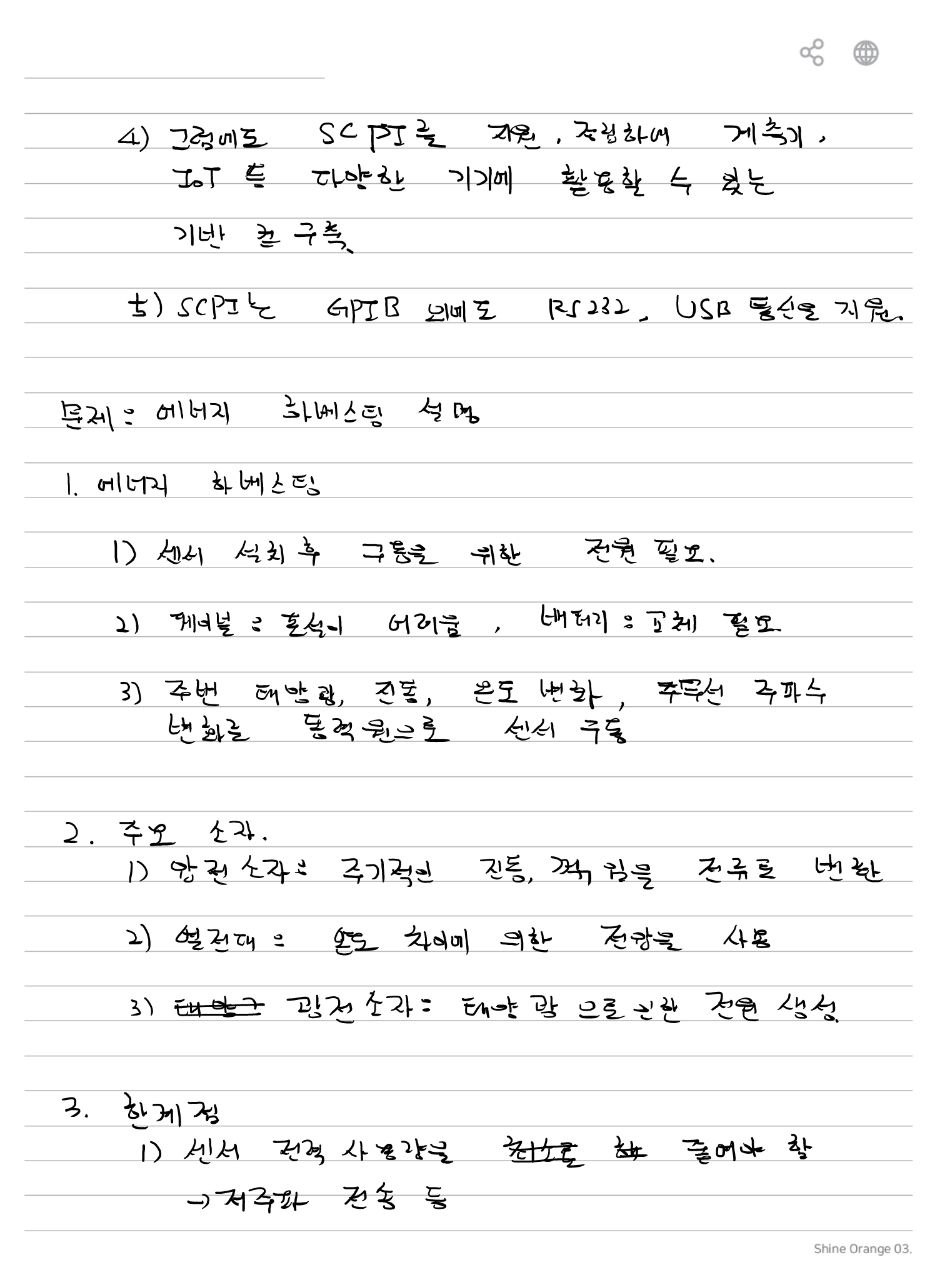 4) 그럼에도 SCPI를 지원, 전림하여 계측기,
IoT 등 다양한 기기에 활용할 수 있는
기반 을 구축
5) SCPI는 GPIB 외에도 RS232, USB 통신을 지원.
문제 : 에너지 하베스팅 설명
1. 에너지 하베스팅
1) 센서 설치 후 구동을 위한 전원 필요.
2) 케이블 : 혼석이 어려움, 배터리 : 교체 필요
3) 주변 태양광, 진동, 온도 변화, 무선 주파수
변화를 동력원으로 센서 구동
2. 주요 소자.
1) 압전소자 : 주기적인 진동, 힘을 전류로 변환
2) 열전대 : 온도 차이에 의한 전압을 사용
3) 광전소자 : 태양광으로 인한 전원 생성
3. 한계점
1) 센서 전력 사용량을 줄여야 함
→ 저주파 전송 등
Shine Orange 03.